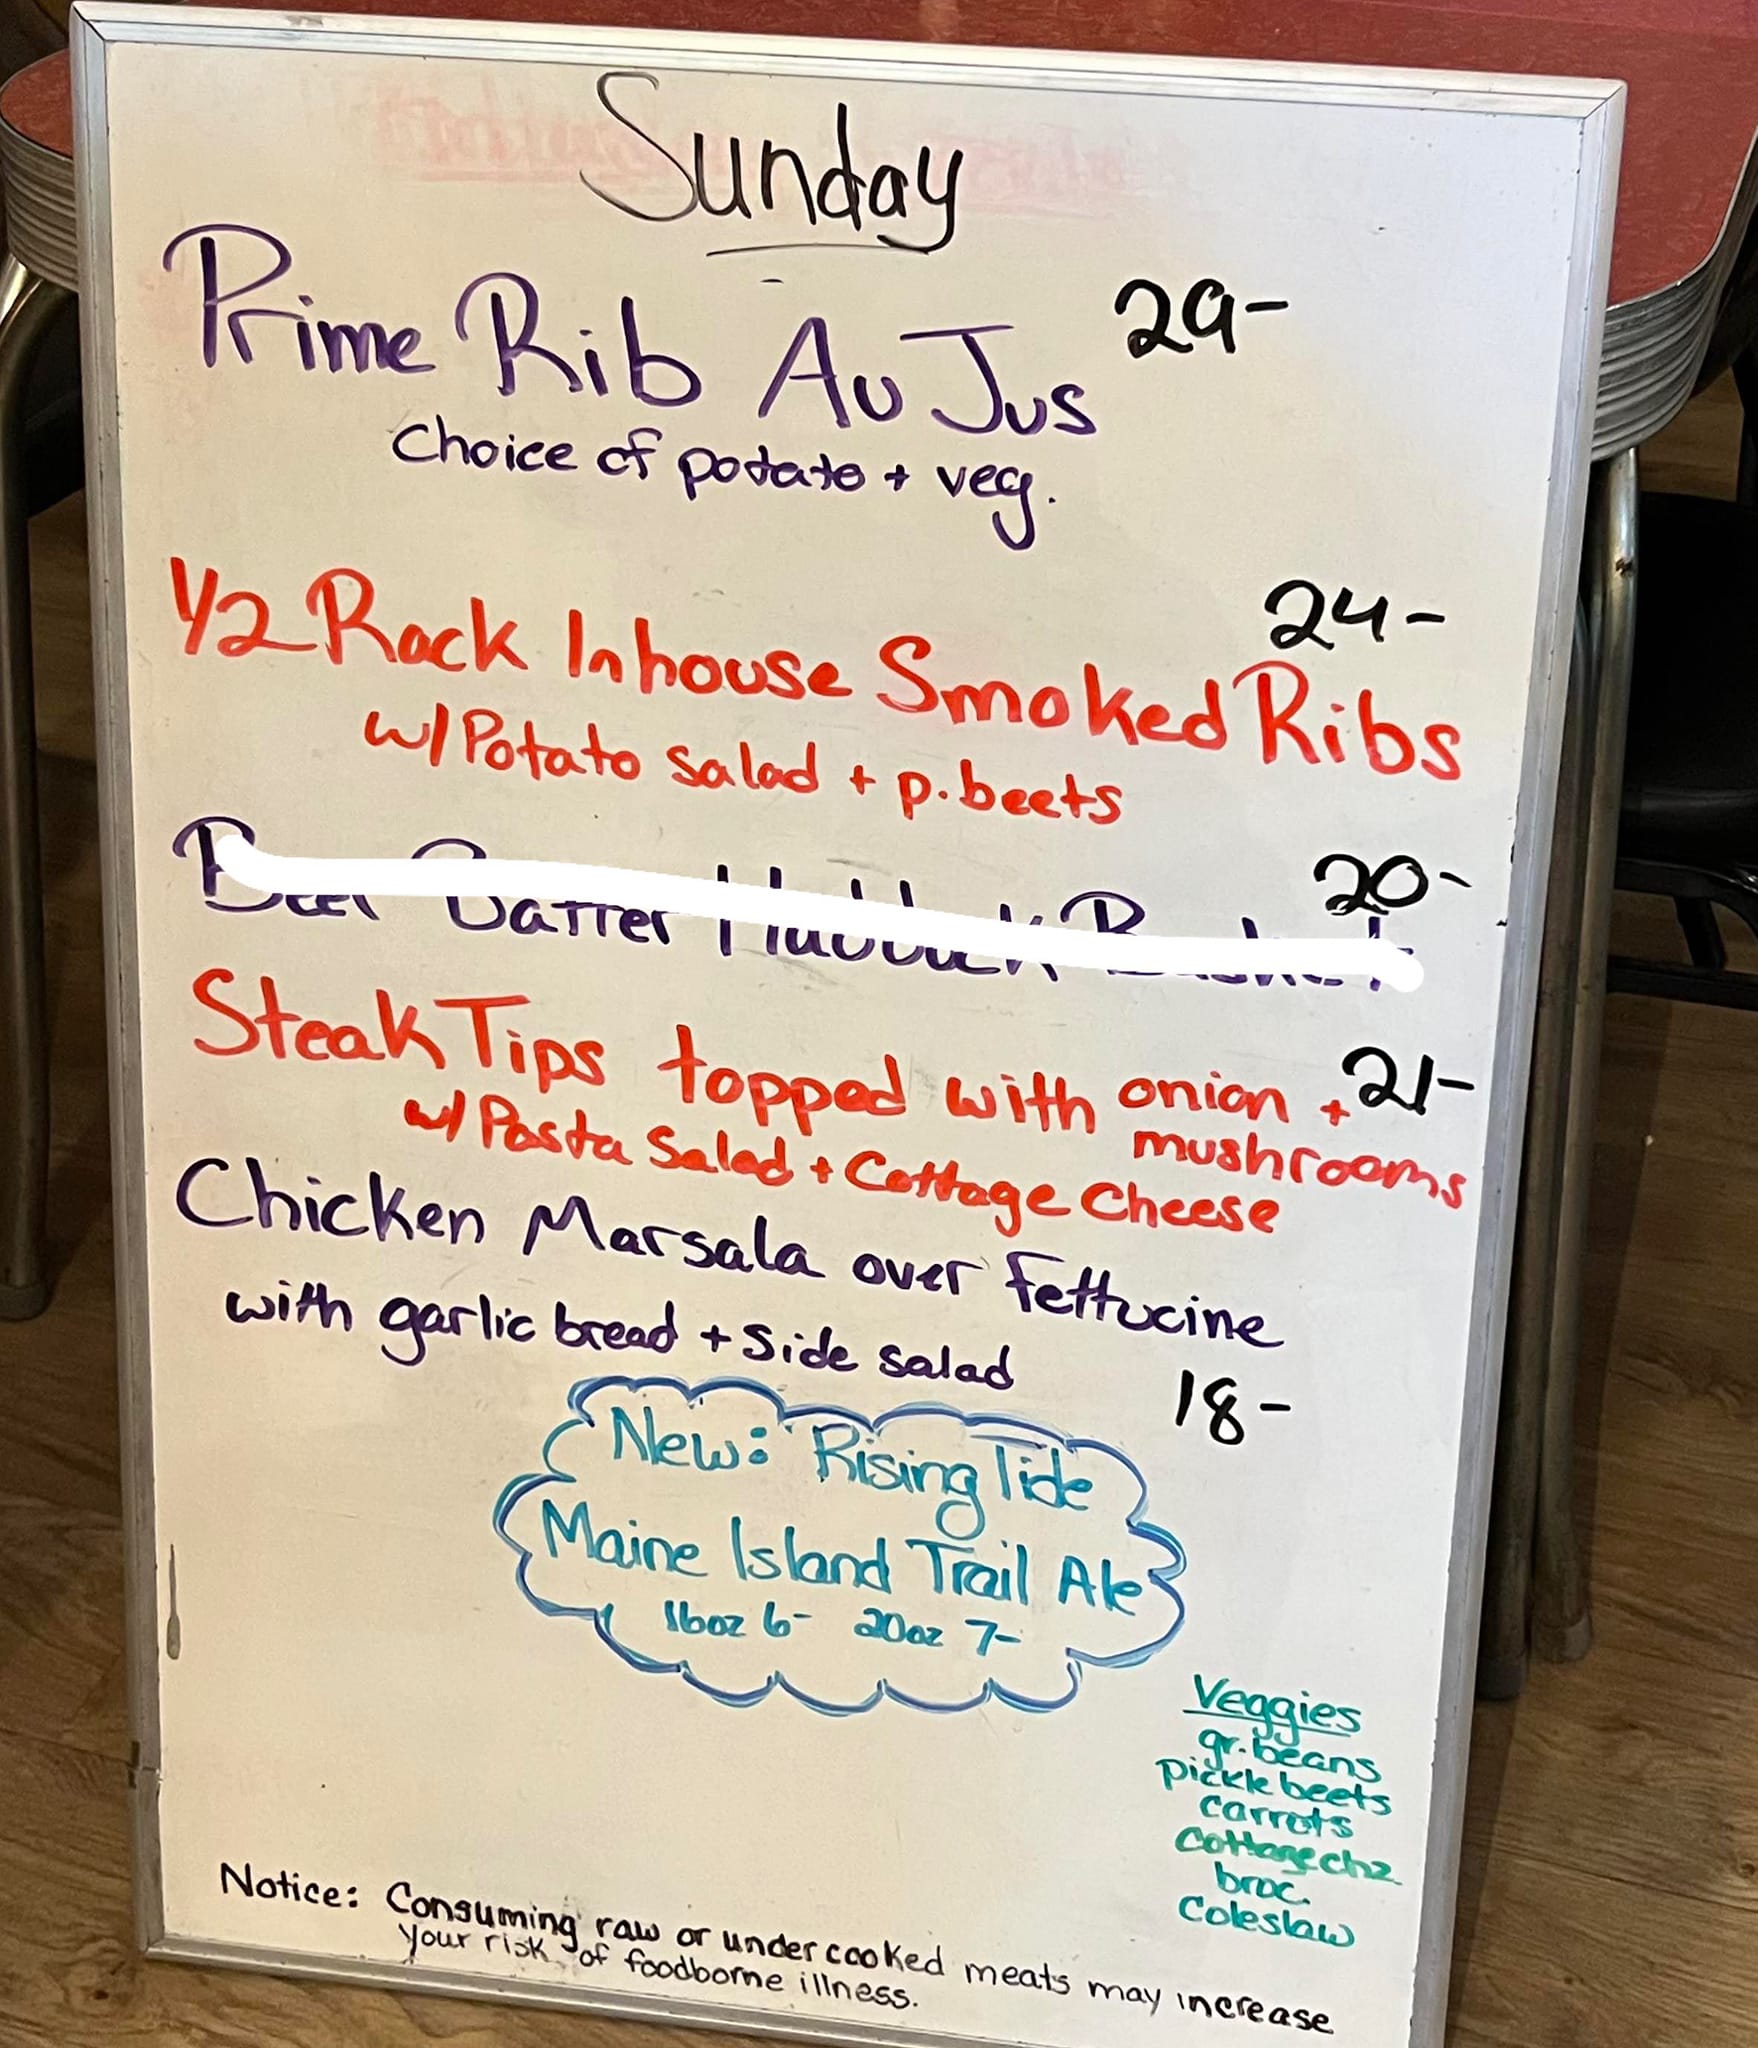 Sunday
Prime Rib Au Jus 29-
Choice of potato + veg.
1/2 Rack Inhouse Smoked Ribs 24-
w/ Potato Salad + p. beets
Beer Batter Haddock Basket 20-
Steak Tips topped with onion + 21-
mushrooms
w/ Pasta Salad + Cottage Cheese
Chicken Marsala over Fettucine
with garlic bread + side salad
18-
New: Rising Tide
Maine Island Trail Ale
16oz 6- 20oz 7-
Veggies
gr. beans
pickle beets
carrots
cottage chz
broc.
Coleslaw
Notice: Consuming raw or undercooked meats may increase
your risk of foodborne illness.